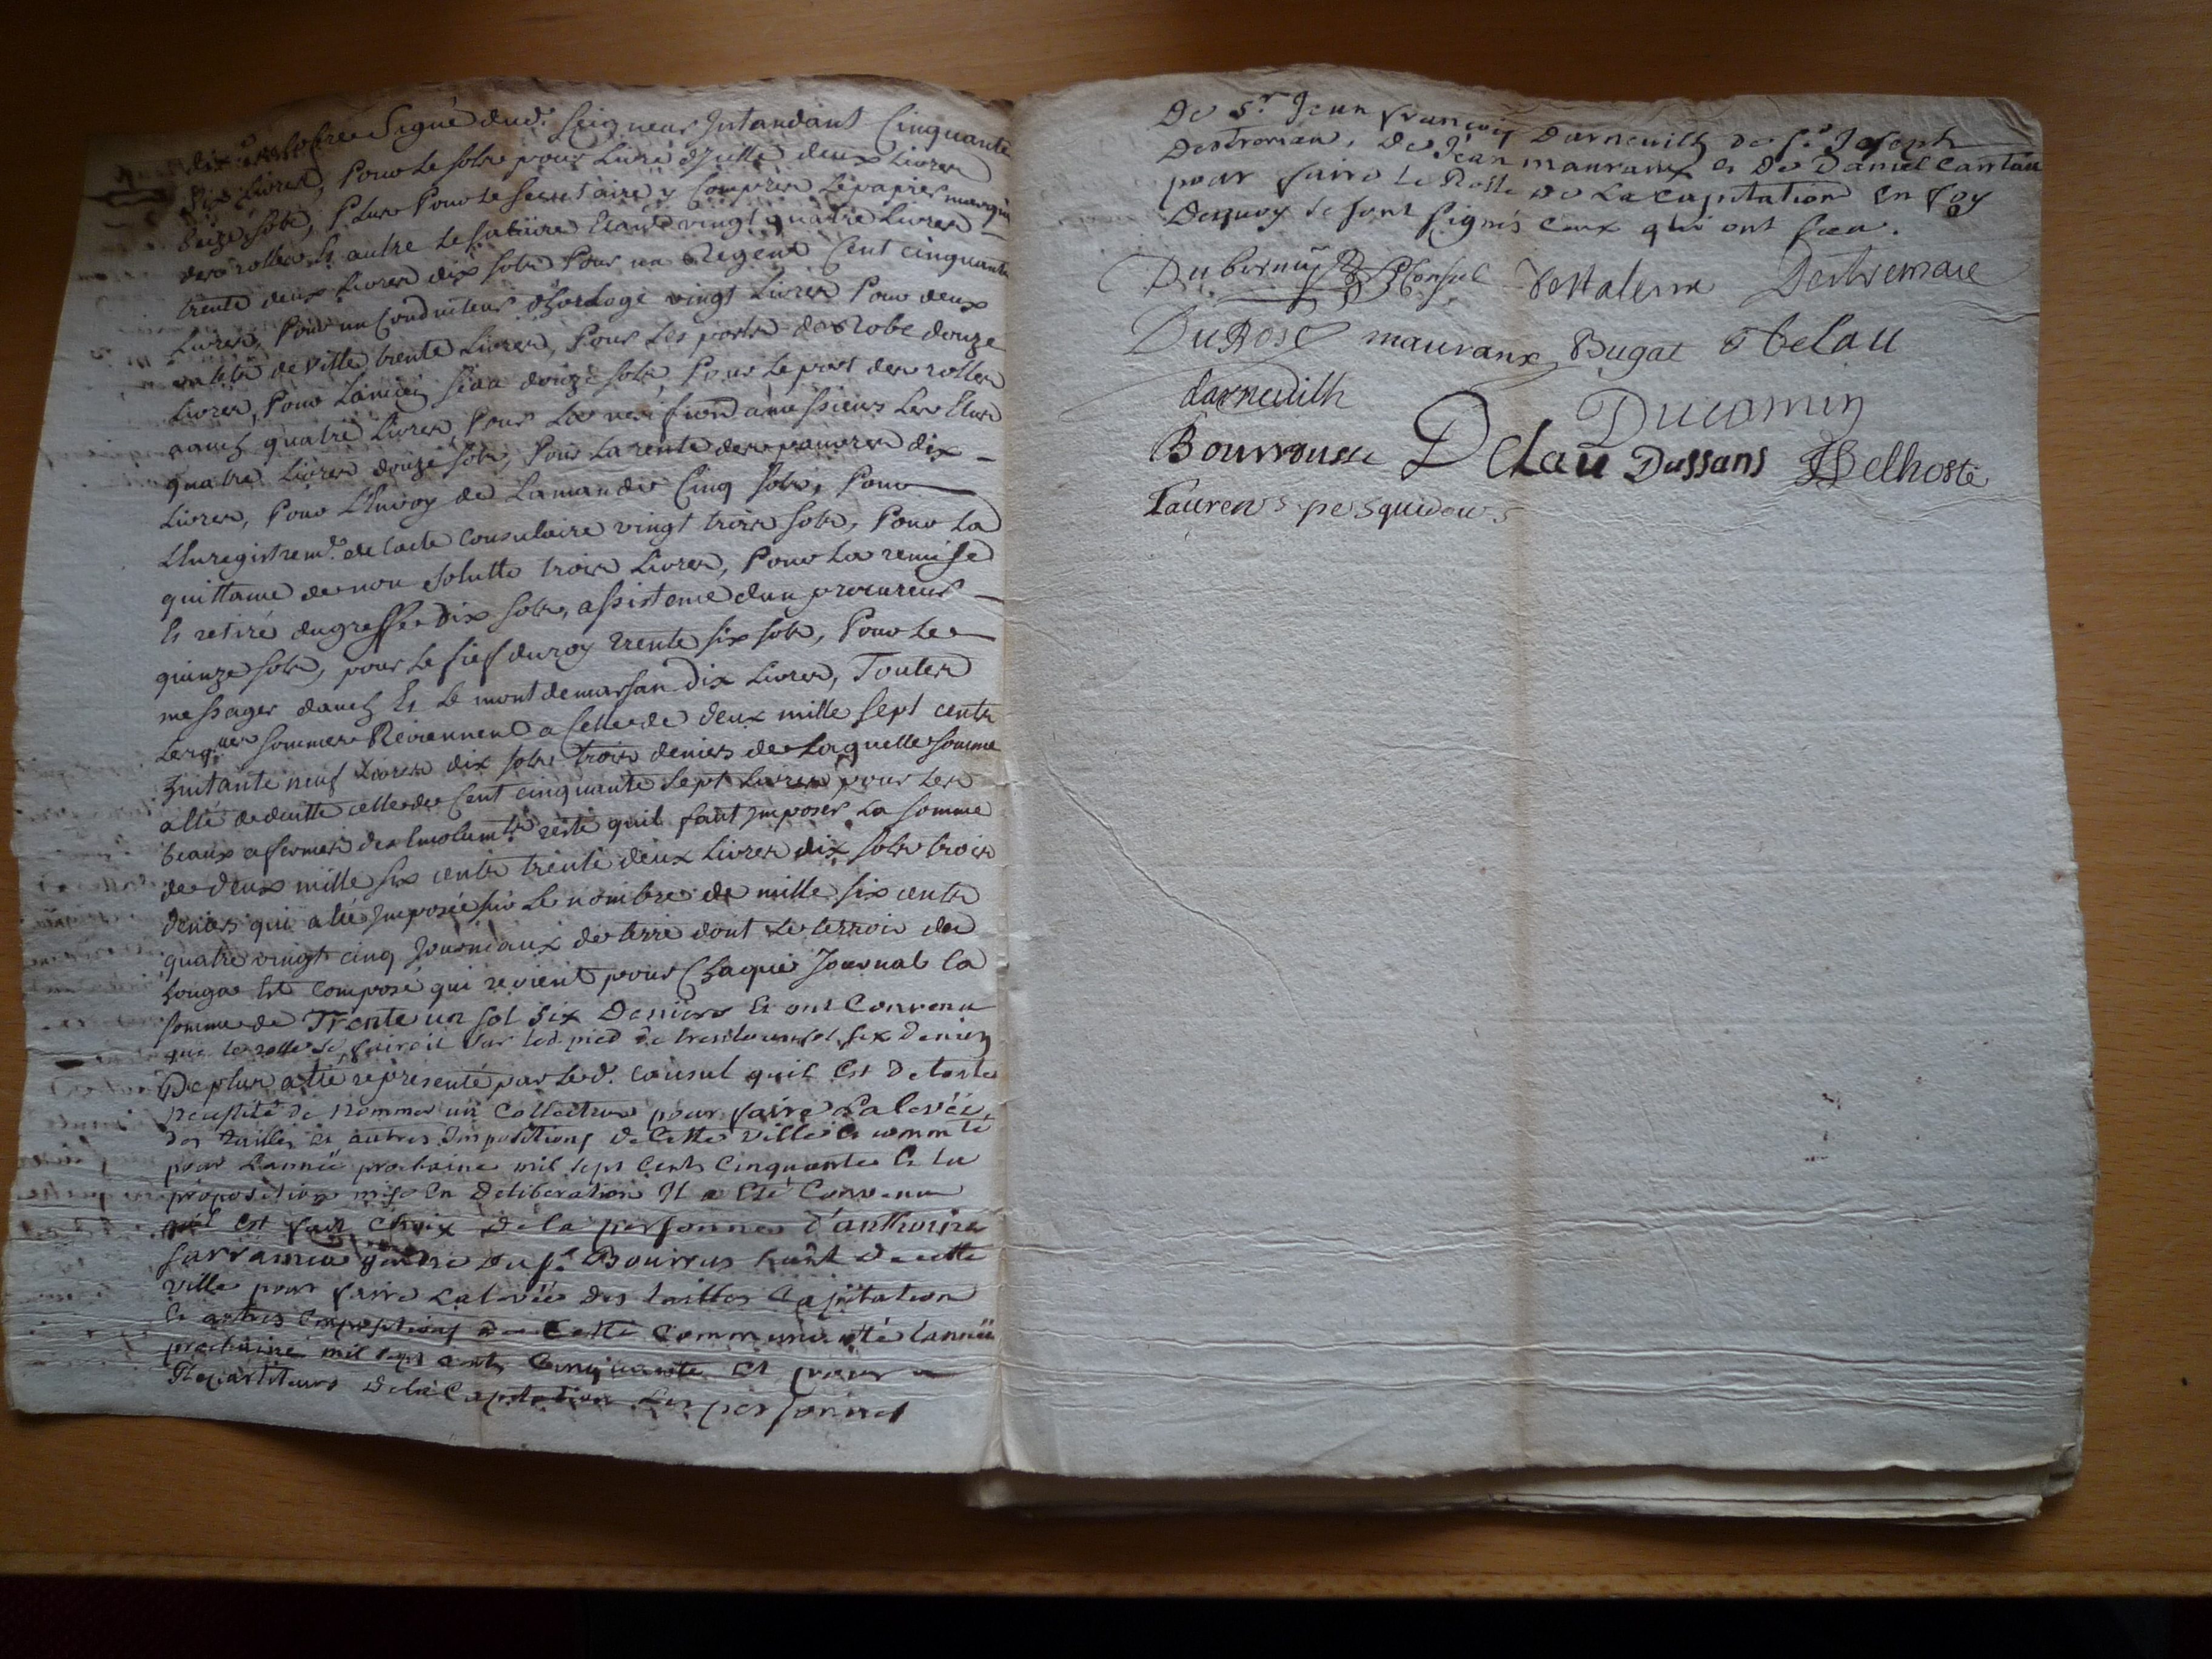 dix octobre Signé dud. Seigneur Intandant Cinquante
Six Livres, Pour le solvs pour Livre d'jcelle deux Livres
seize sols, Plus Pour le Secretaire y Compris le papier marqué
des rolles Et autre le salaire Et autre vingt quatre Livres
trente deux Livres dix sols Pour un Regent Cent cinquante
Livres, Pour un Conduiteur d'horloge vingt Livres Pour deux
valets de ville trente Livres, Pour les ports de Robe douze
Livres, Pour douze sols, Pour le port des rolles
dauch quatre Livres Pour La messieurs Les Elus
quatre Livres douze sols, Pour La rente des pauvres dix
Livres, Pour L'Envoy de Lamandes Cinq sols, Pour
L'Enregistremt. de l'acte Consulaire vingt trois sols, Pour La
quittance de non solutto trois Livres, Pour La remise
Et retiré du greffe Dix sols, assistence d'un procureur
quinze sols, pour le fief du roy trente six sols, Pour le
messager dauch Et le mont de marsan Dix Livres, Toutes
Lesqules sommes Reviennent a Celle de deux mille sept cents
huitante neuf Livres dix sols trois deniers de Laquelle somme
a été deduitte celle de Cent cinquante sept Livres pour les
beaux afermes des Emolumts reste quil faut Jmposer La somme
de deux mille six cents trente deux Livres dix sols trois
deniers qui a été Jmposée sur Le nombre de mille six cents
quatre vingt cinq Journaux de terre dont Le terroir du
houga Est composé qui revient pour Chaque Journal La
somme de Trente un sol six Deniers Et ont Convenu
que le rolle se fairoit sur led. pied de trente un sol six deniers
De plus a été représenté par led. Consul quil Est De toute
necessité de Nommer un Collecteur pour faire La levée
des tailles et autres Jmpositions de Cette ville et commté
pour L'année prochaine mil sept cents Cinquante Et la
proposition mise En Deliberation Il a Eté Convenu
quil Est fait choix de la personne d'anthoine
Sarramea gendre du sr. Bourrus hant de cette
ville pour faire La levée des tailles Capitation
Et autres Impositions de Cette Communauté Lannée
prochaine mil sept cents Cinquante Et pour
Repartiteurs de la Capitation Les personnes
De Sr. Jean françois Darneuilh de Sr. Joseph
Destremau, de Jean mauranx et De Daniel Cantau
pour faire le Rolle de La Capitation En foy
Dequoy se sont signés Ceux qui ont sceu.
Duberniy Consul Destremau
DuBosc mauranx Dugat Delau
darneuilh
Ducomin
Bourrousse Delau Dussans Delhoste
Laurens pesquidous